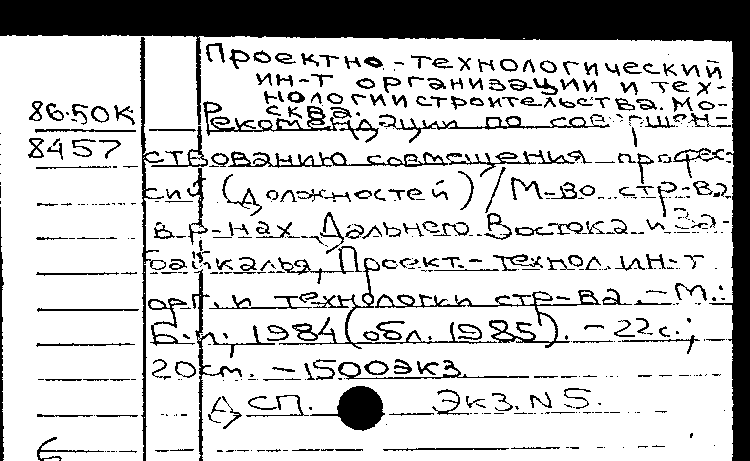 Проектно-технологический
ин-т организации и тех-
нологии строительства. Мо-
сква.
86-50К
Рекомендации по совершен-
8457
ствованию совмещения профес-
сий (должностей) / М-во стр-ва
в р-нах Дальнего Востока и За-
байкалья, Проект.-технол. ин-т
орг. и технологии стр-ва. - М.:
Б.и., 1984 (обл. 1985). - 22с.;
20см. - 1500экз.
ДСП. Экз. N 5.